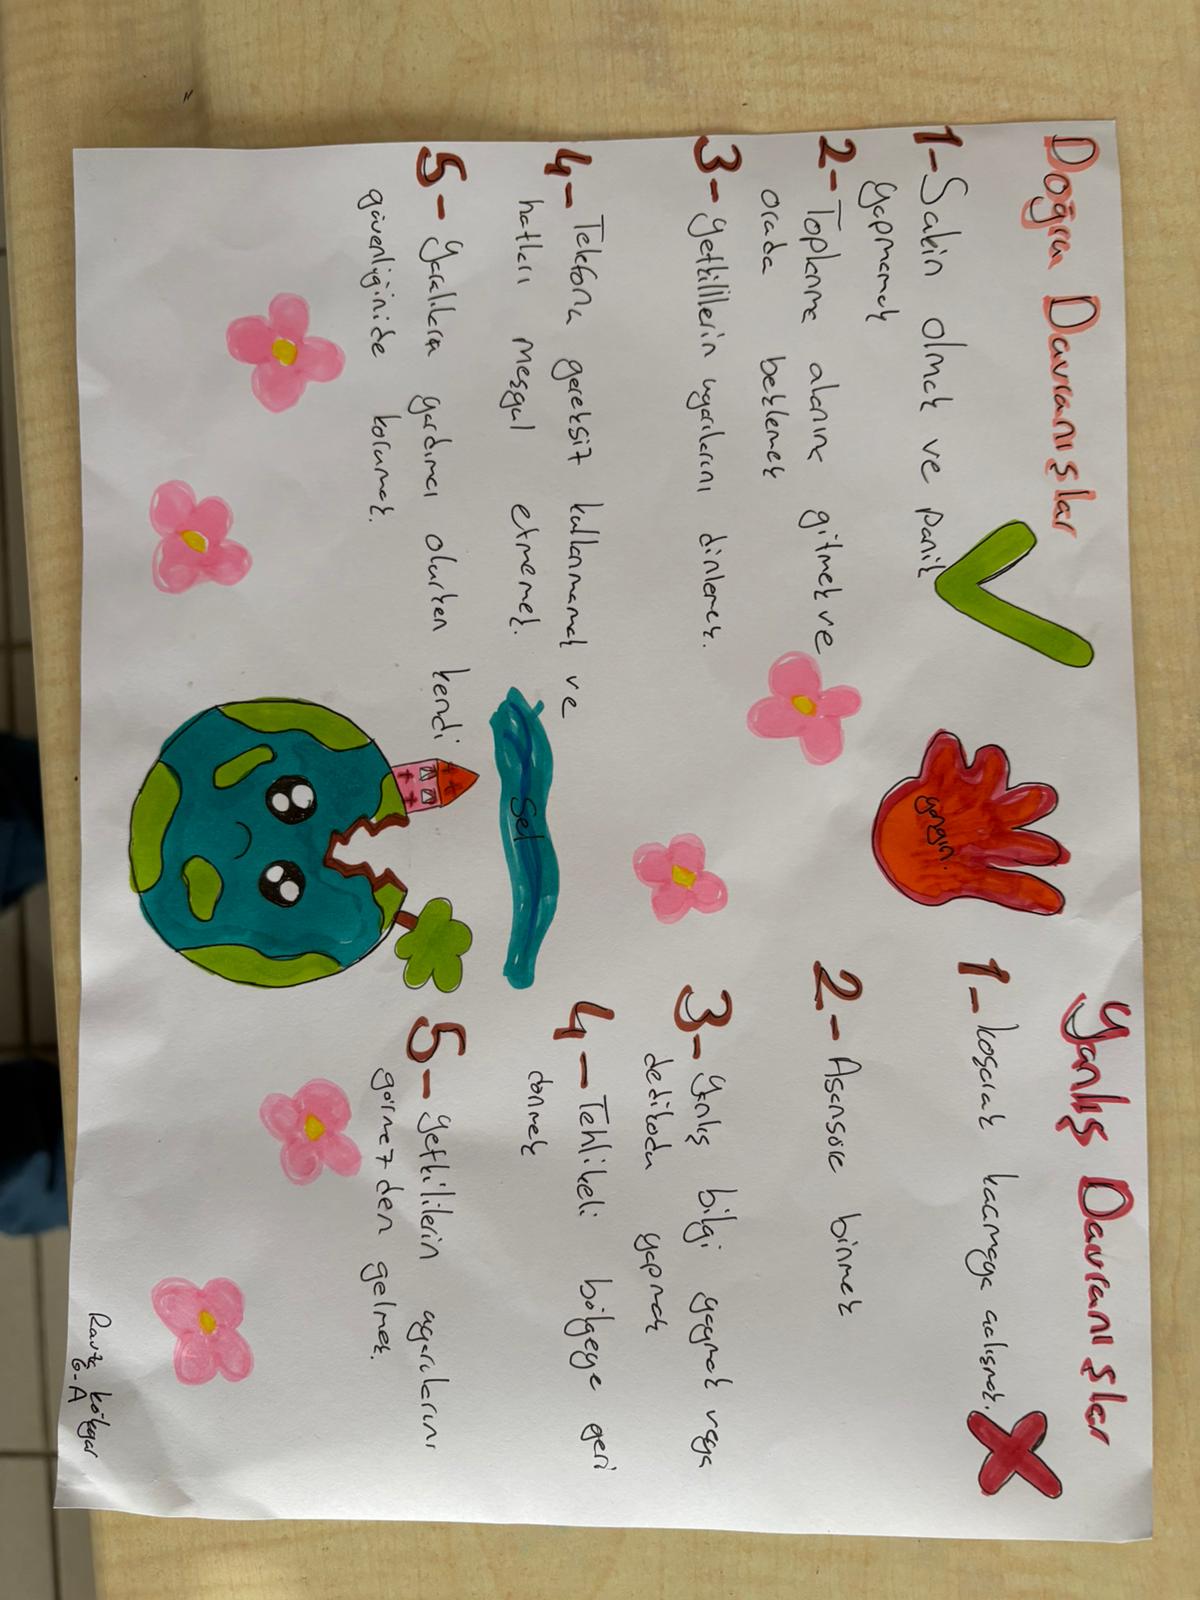 Doğru Davranışlar
1- Sakin olmak ve panik
yapmamak
2- Toplanma alanına gitmek ve
orada beklemek
3- Yetkililerin uyarılarını dinlemek.
4- Telefonu gereksiz kullanmamak ve
hatları meşgul etmemek.
5- Yaralılara yardımcı olurken kendi
güvenliğinide korumak.
yangın
Sel
Yanlış Davranışlar
1- koşarak kaçmaya çalışmak.
2- Asansöre binmek
3- Yanlış bilgi yaymak veya
dedikodu yapmak
4- Tehlikeli bölgeye geri
dönmek
5- Yetkililerin uyarılarını
görmezden gelmek.
6-A